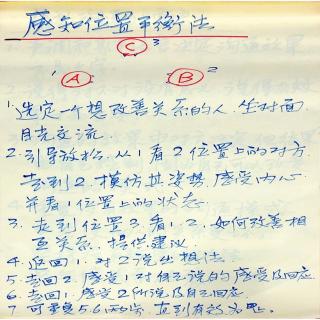 感知位置平衡法
C 3
A B 2
1 选定一个想改善关系的人. 坐对面
目光交流.
2. 引导放松. 从1看2位置上的对方
走到2. 模仿其姿势. 感受内心.
并看1位置上的状态.
3. 走到位置3. 看1.2. 如何改善相
互关系. 提供建议.
4. 返回1. 对2说出想法
5. 走回2. 感受1对自己说的感受及回应
6. 走回1. 感受2所说及自己回应
7 可重复5.6两步. 直到有效为止.